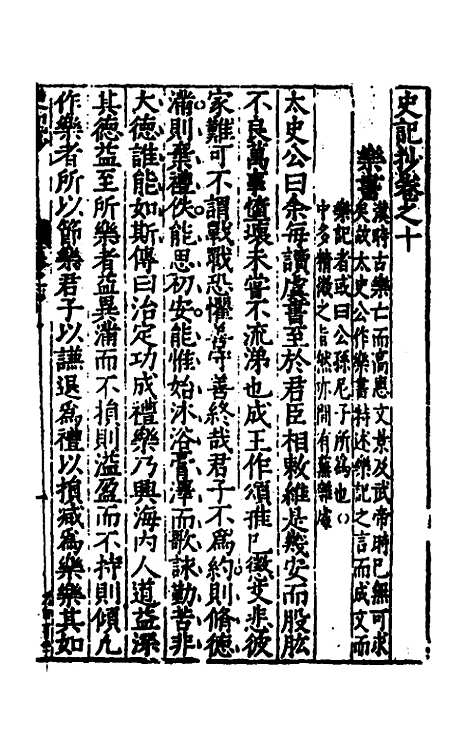 史記抄卷之十
樂書
漢時古樂亡而高惠文景及武帝時已無可求
矣故太史公作樂書特述樂記之言而成文而
樂記者或曰公孫尼子所爲也
中多精微之旨然亦間有蕪雜處
太史公曰余每讀虞書至於君臣相敕維是幾安而股肱
不良萬事墮壞未嘗不流涕也成王作頌推已懲艾悲彼
家難可不謂戰戰恐懼善守善終哉君子不爲約則脩德
滿則棄禮佚能思初安能惟始沐浴膏澤而歌詠勤苦非
大德誰能如斯傳曰治定功成禮樂乃興海内人道益深
其德益至所樂者益異滿而不損則溢盈而不持則傾凡
作樂者所以節樂君子以謙退爲禮以損減爲樂樂其如